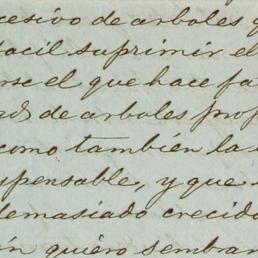 cesivo de arboles q
facil suprimir el
rse el que hace fa
ad de arboles prof
como tambien la
spensable, y que
demasiado crecido
ón quiero sembrar